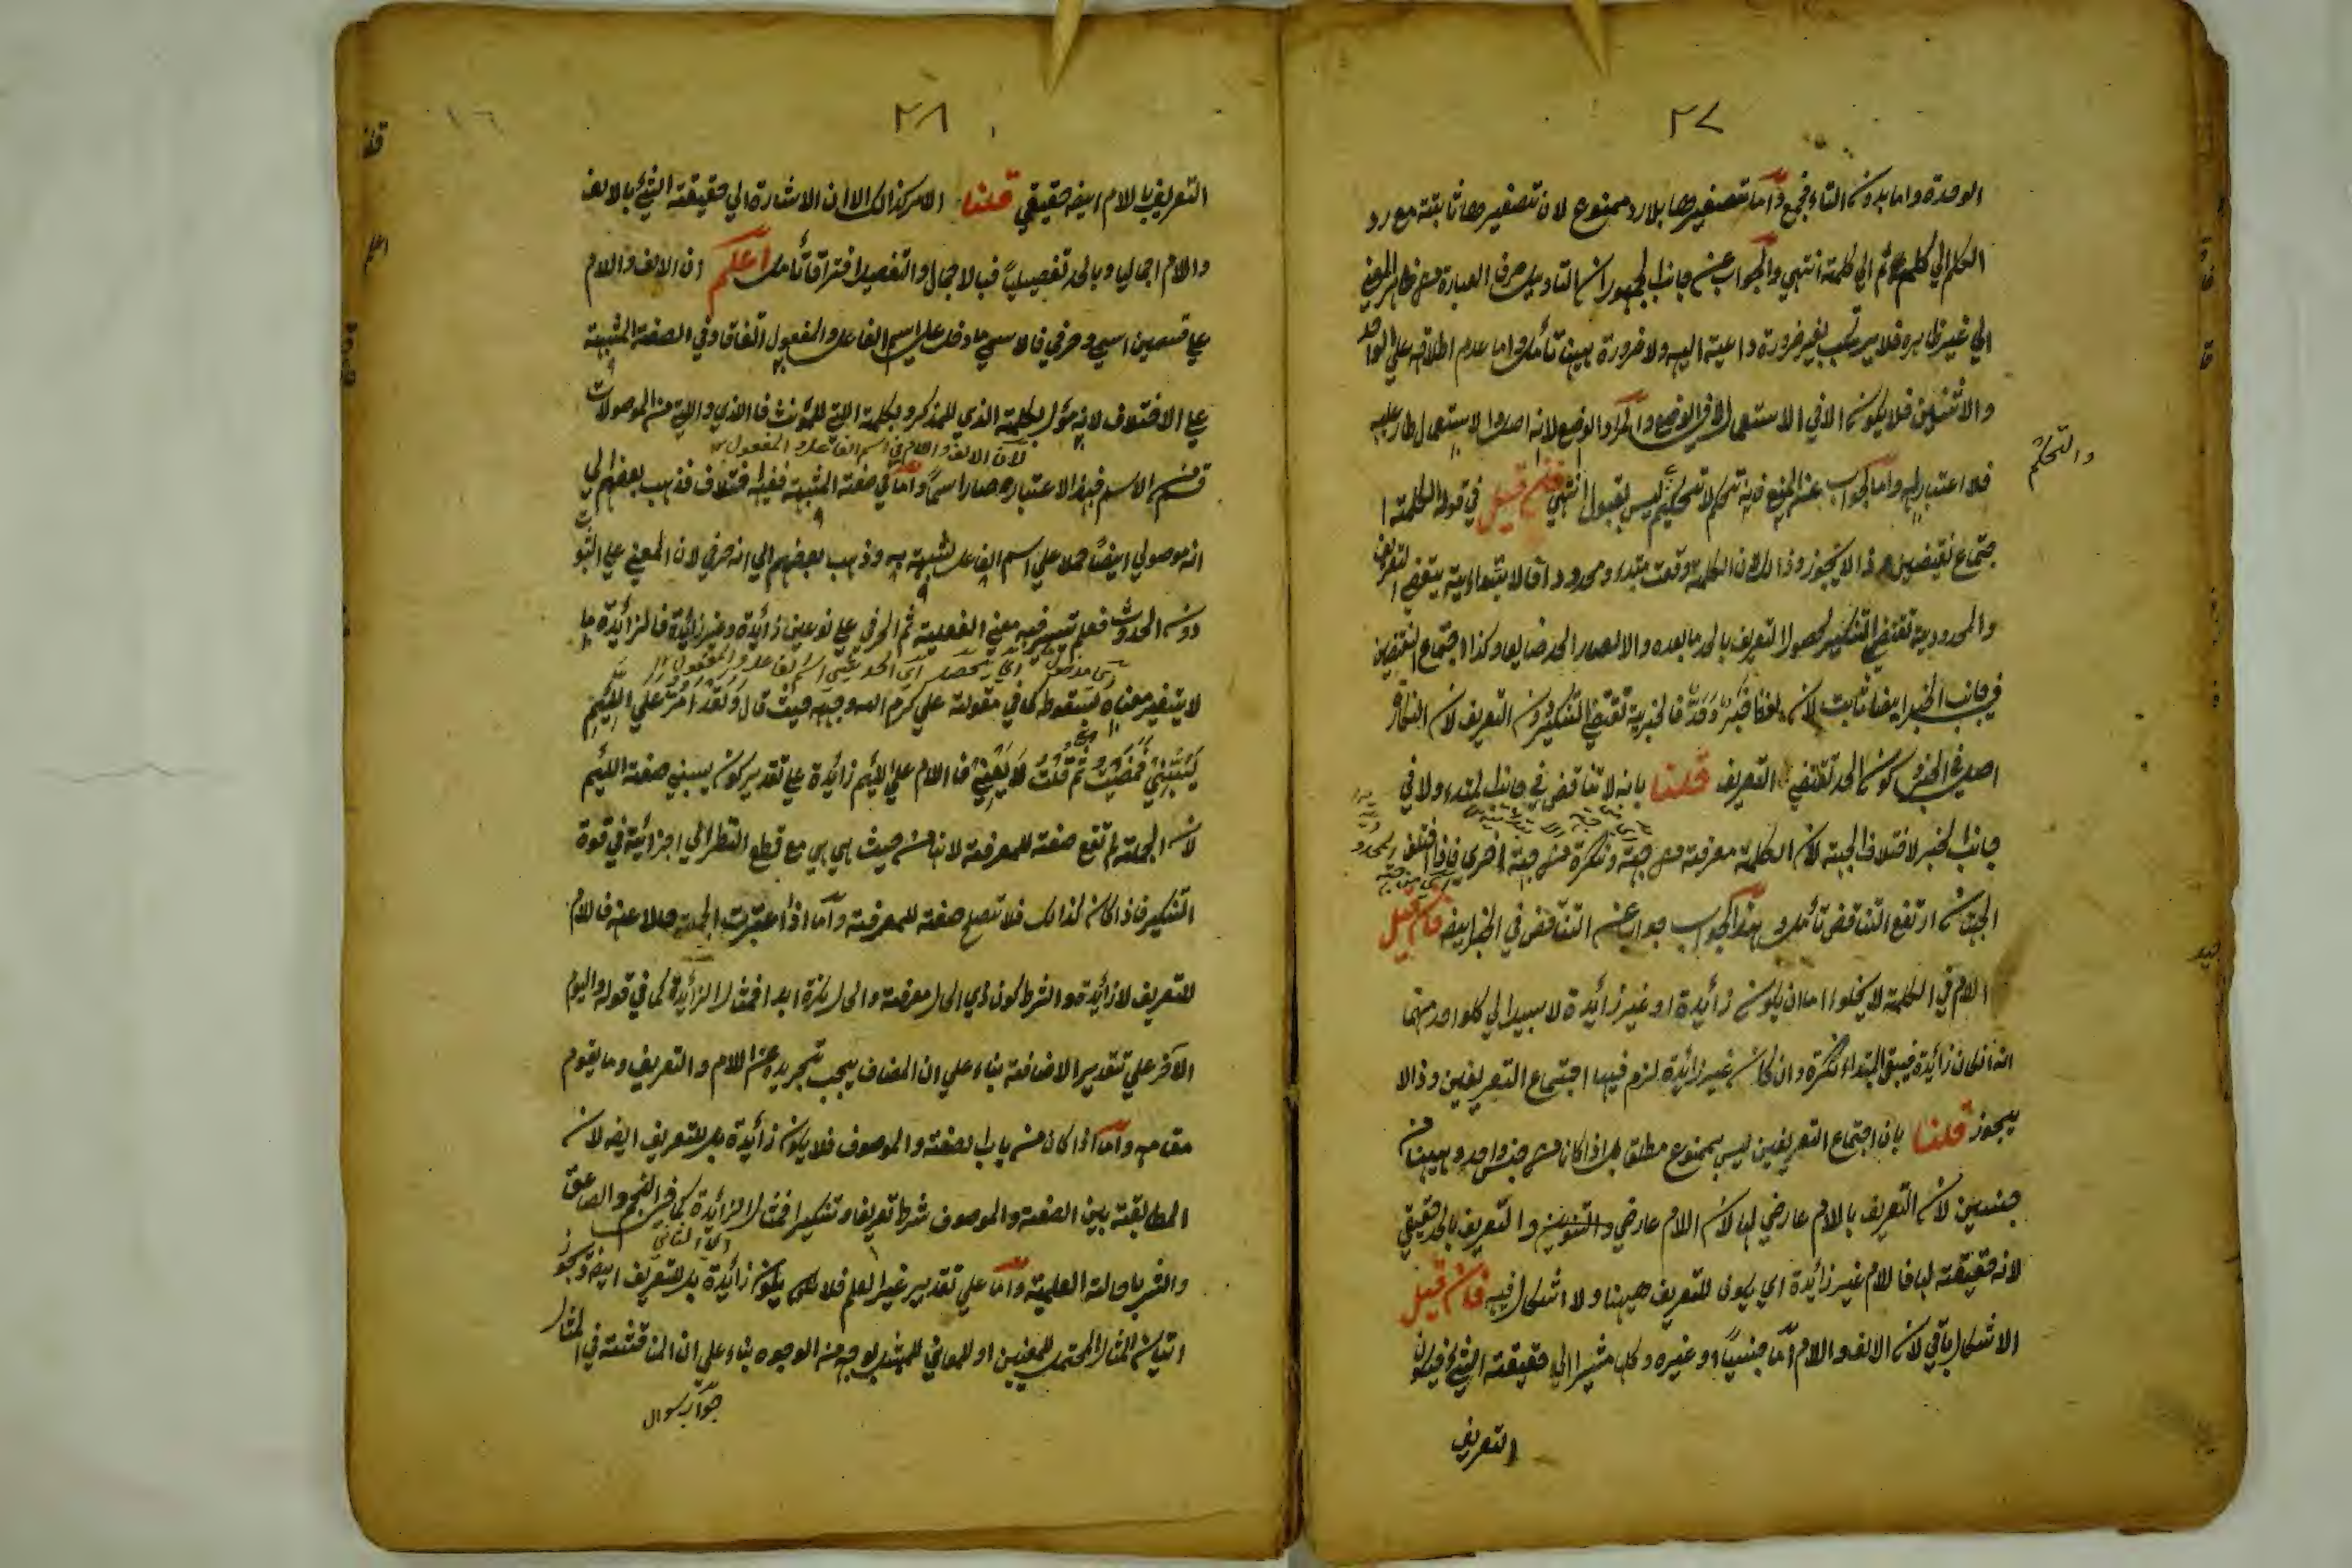 ٢٧
الوحدة واما بدون التاء فجمع واما تصغيرها بلا رد ممنوع لان تصغيرها ثابتة مع رد
الكلم الي كلمه ثم الي كلمة انتهي والجواب عن جانب الجمهور ان التاويل صرف العبارة عن ظاهر المعني
الي غير ظاهره فلا يرتكب بغير ضرورة داعية اليه ولا ضرورة ههنا تأمل واما عدم اطلاقه علي الواحد
والاثنين فلا يكون الا في الاستعمال لا في الوضع والمراد الوضع لانه اصل والاستعمال طار عليه
فلا اعتبار له واما الجواب عن المنع فانه تحكم ليس بقبول انتهي فان قيل في قوله الكلمة ا
والتحكم
جتماع نقيضين هذا لا يجوز وذالك لان الكلمة وقعت مبتدء ومحدودا فالابتدائية يقتضي التعريف
والمحدودية تقتضي التنكير لحصول التعريف بالحد ما بعده والا لصار الحد ضايعا وكذا اجتماع النقيضين
في جانب الخبر ايضا ثابت لان لفظا خبر وحد فالخبرية تقتضي التنكير دون التعريف لان النكارة
اصل في الخبر وكون الحد تقتضي التعريف قلنا بانه لا تناقض في جانب المبتدء ولا في
جانب الخبر لاختلاف الجهة لان الكلمة معرفة من جهة ونكرة من جهة اخري فاذا اختلف
الجهتان ارتفع التناقض تأمل وبهذا الجواب جواب عن التناقض في الخبر ايضه فان قيل
اللام في الكلمة لا يخلوا اما ان يكون زائيدة او غير زائيدة لا سبيل الي كل واحد منهما
انه ان كان زائيدة فيبقي المبتداء نكرة وان كان غير زائيدة لزم فيها اجتماع التعريفين وذا لا
يجوز قلنا بان اجتماع التعريفين ليس بممنوع مطلقا بل اذا كان من جنس واحد وههنا من
جنسين لان التعريف باللام عارضي لها لان اللام عارضي والتنوين والتعريف بالحد حقيقي
لانه حقيقة لها فاللام غير زائيدة اي يكون للتعريف ههنا ولا اشكال فيه فان قيل
الاشكال باقي لان الالف واللام اما جنسياً او غيره وكلها مشير الي حقيقة الشيئ فيكون
التعريف
٢٨
التعريف باللام ايضه حقيقي قلنا الامر كذالك الا ان الاشارة الي حقيقة الشيئ بالالف
واللام اجماليا وبالحد تفصيلياً فبالاجمال والتفصيل افتراقا تأمل اعلم ان الالف واللام
علي قسمين اسمي وحرفي فالاسمي ما دخل علي اسم الفاعل والمفعول اتفاقا وفي الصفة المشبهة
علي الاختلاف لانه مؤل بكلمة الذي للمذكر وبكلمة التي للمؤنث فالذي والتي من الموصولات
لان الالف واللام في اسم الفاعل والمفعول
قسم من الاسم فبهذا الاعتبار صار اسمياً واما في صفة المشبهة ففيه اختلاف فذهب بعضهم الي
انه موصولي ايضاً حملا علي اسم الفاعل لشبهة به وذهب بعضهم الي انه حرفي لان المعني علي الثبوت
دون الحدوث فعلم تيسر فيه معني الفعلية ثم الحرفي علي نوعين زائيدة وغير زائيدة فالزائيدة ما
لا يتغير معناه بسقوط كما في مقولة علي كرم الله وجهه حيث قال ولقد امر علي اللئيم
يسبني فمضيت ثم قلت لا يعنيني فاللام علي لئيم زائيدة علي تقدير كون يسبني صفة اللئيم
لان الجملة لم تقع صفة للمعرفة لانها من حيث هي هي مع قطع النظر الي اجزائية في قوة
التنكير فاذا كان كذالك فلا تصلح صفة للمعرفة واما اذا اعتبرت الجملة حالا عنه فاللام
للتعريف لا زائيدة والشرط كون ذي الحال معرفة والحال نكرة ابدا فمثال الزائيدة كما في قوله واليوم
الآخر علي تقدير الاضافة بناء علي ان المضاف يجب تجريده عن اللام والتعريف وما يقوم
مقامه واما اذا كان من باب الصفة والموصوف فلا يكون زائيدة بل للتعريف ايضه لان
المطابقة بين الصفة والموصوف شرط تعريفا وتنكيرا فمثال الزائيدة كما في النجم والصاعق
والثريا حالة العلمية واما علي تقدير غير العلم فلا يكون زائيدة بل للتعريف ايضه ويجوز
اتيان المثال المحتمل للمعنين او للمعاني للمبتدء بوجه من الوجوه بناء علي ان المناقشة في المثال
جواب سوال